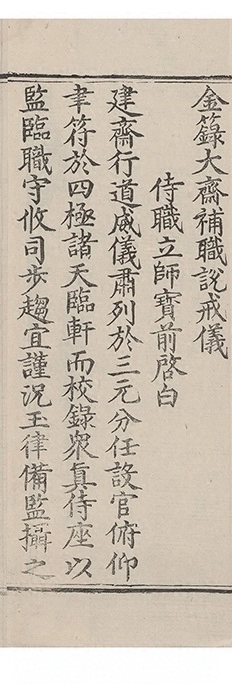 金籙大齋補職說戒儀
侍職立師寶前啓白
建齋行道威儀肅列於三元分任設官俯仰
聿符於四極諸天臨軒而校錄衆真侍座以
監臨職守攸司步趨宜謹況玉律備監攝之